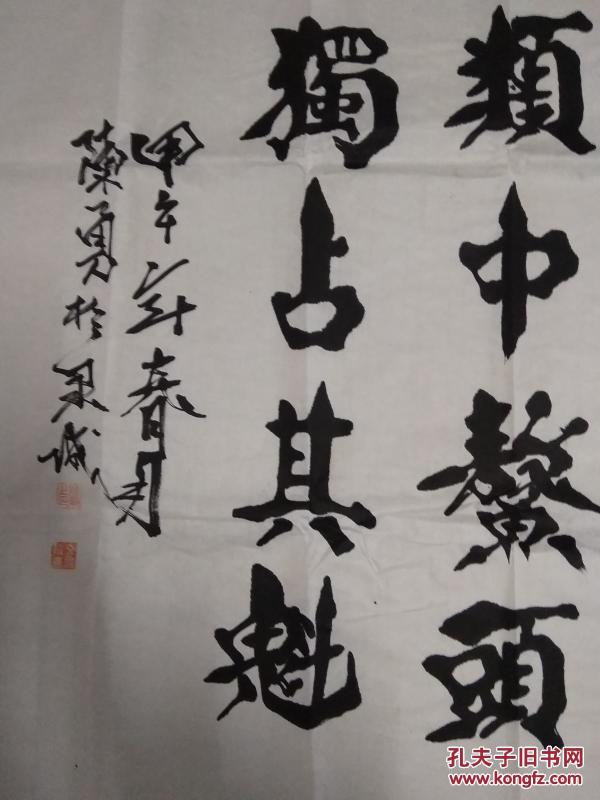 類中鰲頭
獨占其魁
甲午年春月
陳勇於果城
孔夫子旧书网
www.kongfz.com